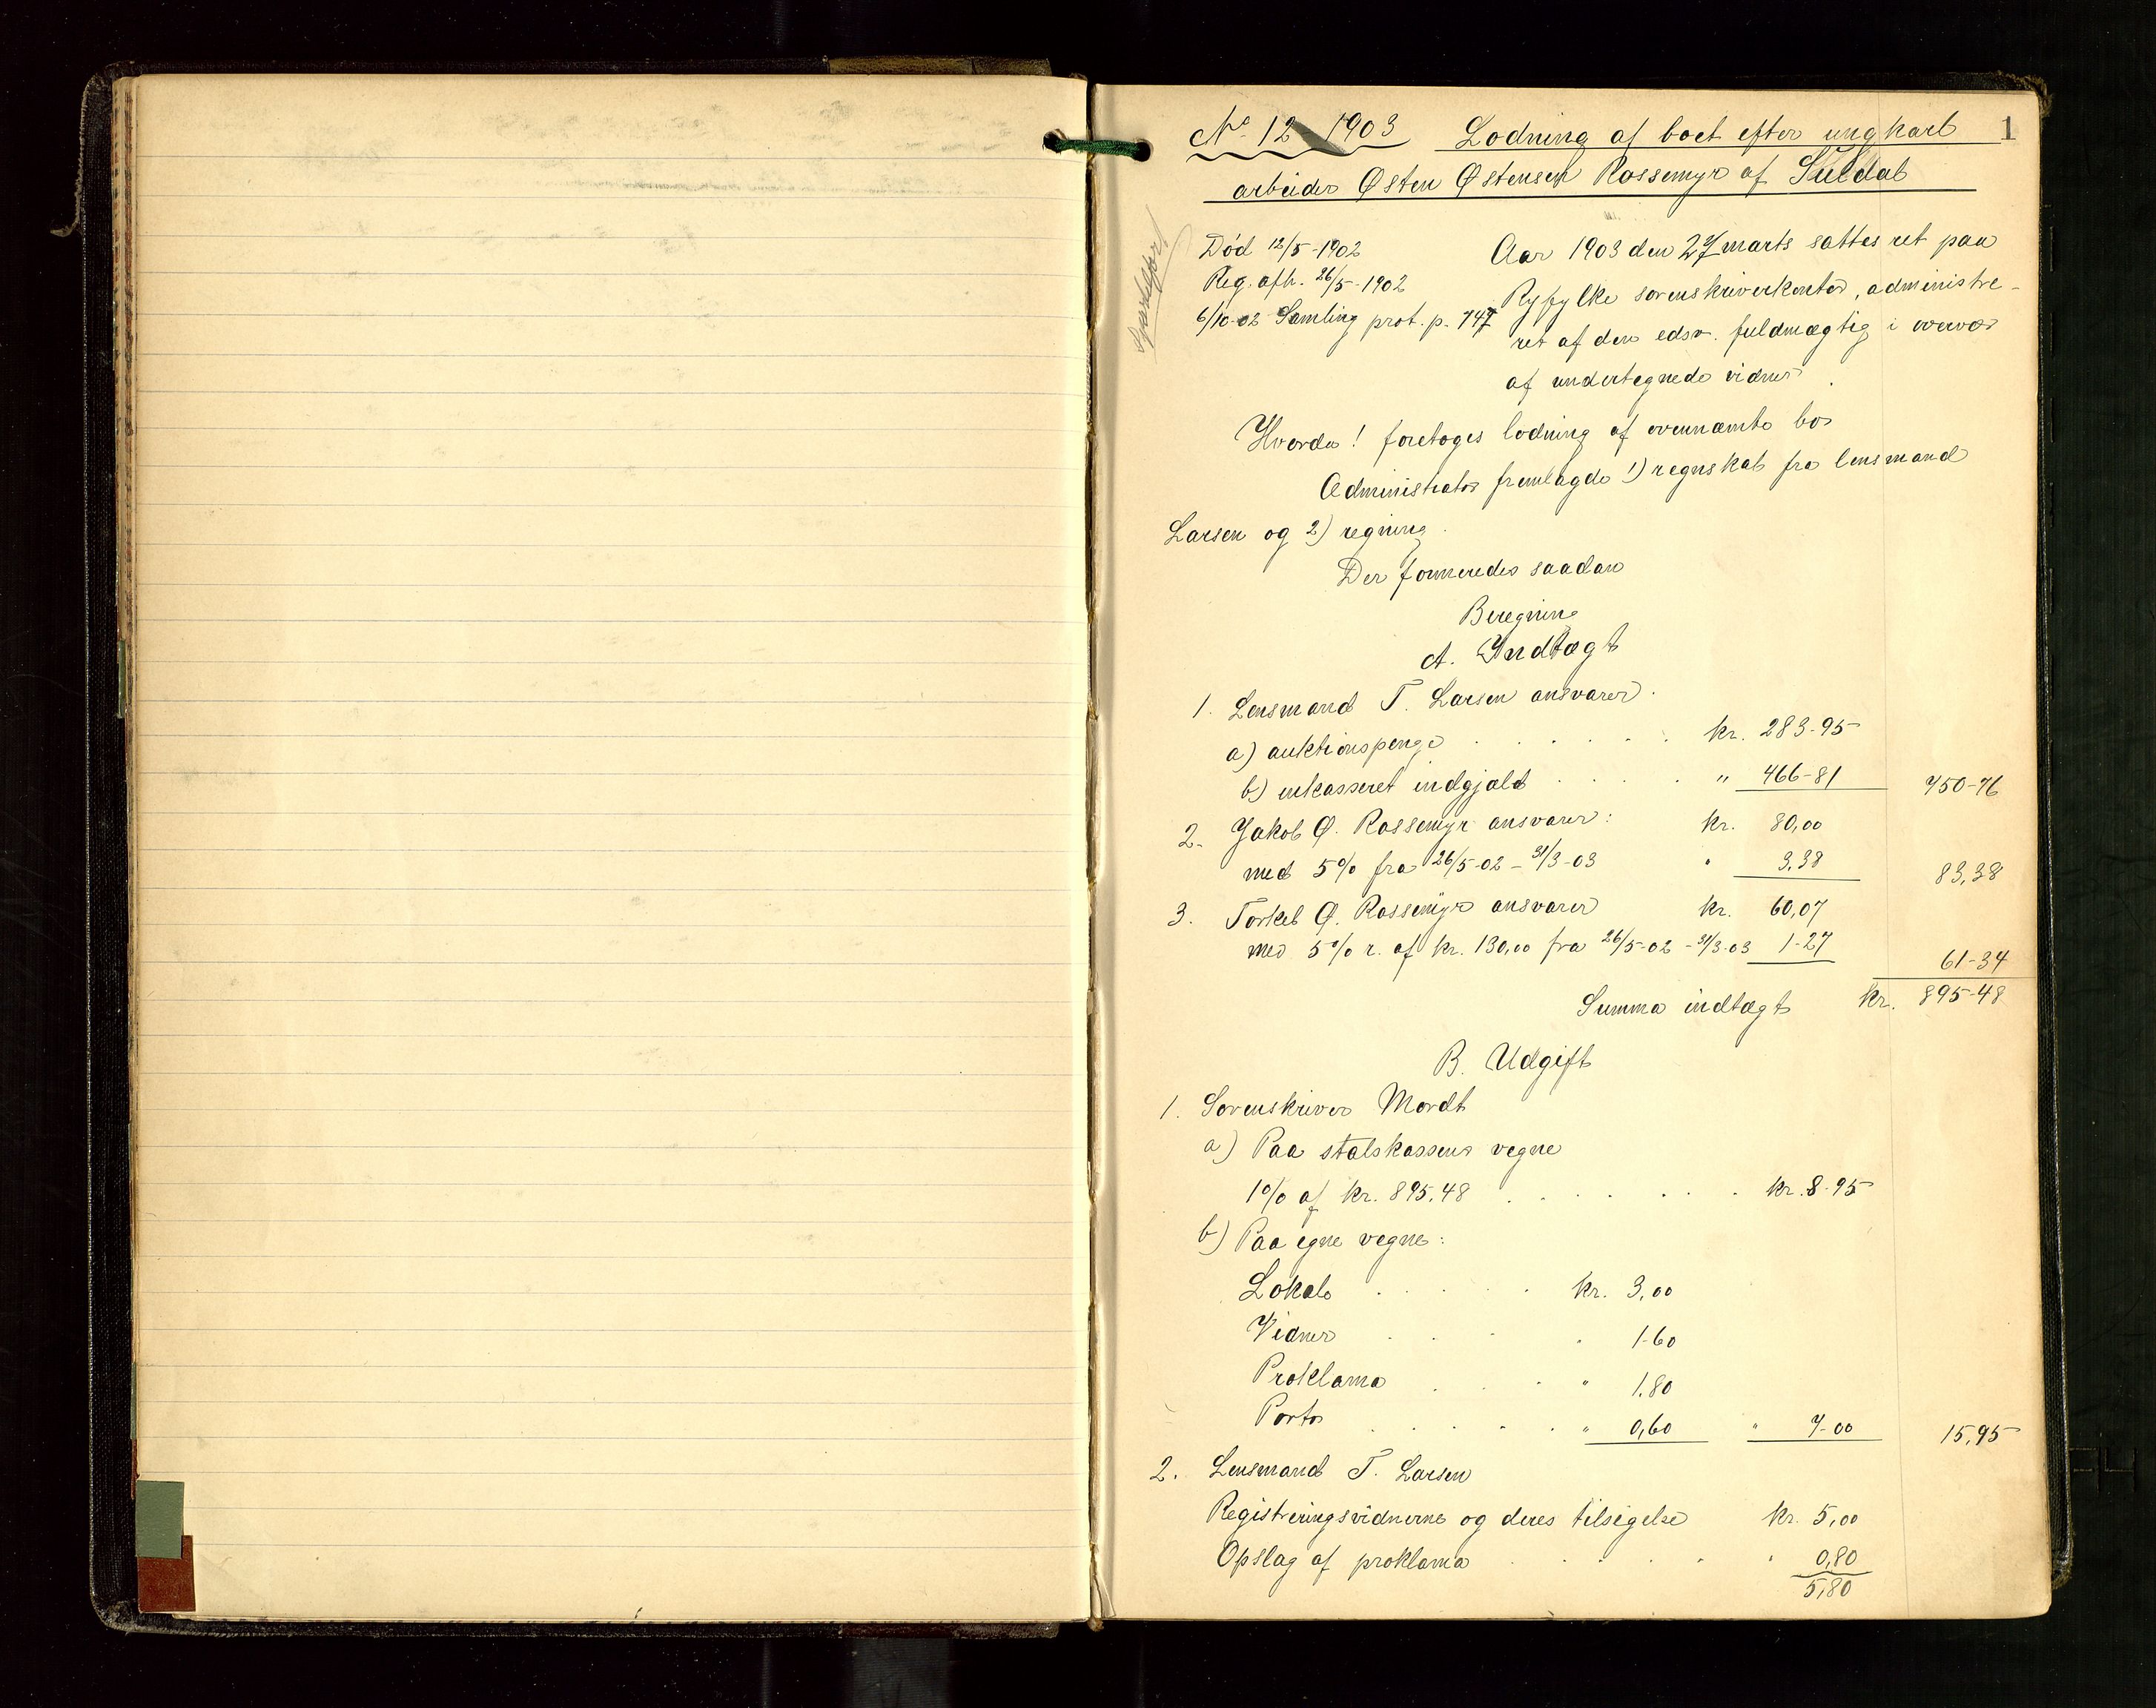 No 12 1903 Lodning af boet efter ungkarl 1
arbeider Østen Østensen Rossemyr af Suldal
Død 12/5-1902
Reg. afh. 26/5-1902
6/10-02 Samling prot. p. 747
Aar 1903 den 27 marts sattes ret paa
Ryfylke sorenskriverkontor, administre-
ret af den edsv. fuldmægtig i overvær
af undertegnede vidner.
Hvorda! foretoges lodning af ovennævnte bo
Administrator fremlagde 1) regnskab fra lensmand
Larsen og 2) regning.
Der formeredes saadan
Beregning
A. Indtægt
1. Lensmand T. Larsen ansvarer.
a) auktionspenge . . . . . kr. 283-95
b) inkasseret indgjæld . . . . " 466-81 750-76
2. Jakob Ø. Rossemyr ansvarer: kr. 80,00
med 5% fra 26/5-02 - 31/3-03 " 3,38 83,38
3. Torkel Ø. Rossemyr ansvarer kr. 60,07
med 5% r. af kr. 130,00 fra 26/5-02 - 31/3-03 1-27 61-34
Summa indtægt kr. 895-48
B. Udgift
1. Sorenskriver Mordt
a) Paa statskassens vegne
1% af kr. 895,48 . . . . . . kr. 8-95
b) Paa egne vegne:
Lokale . . . . kr. 3,00
Vidner . . . " 1-60
Proklama . . . " 1.80
Porto . . . . . " 0,60 " 7-00 15,95
2. Lensmand T. Larsen
Registreringsvidnerne og deres tilsigelse kr. 5,00
Opslag af proklama . . . . . " 0,80
5,80